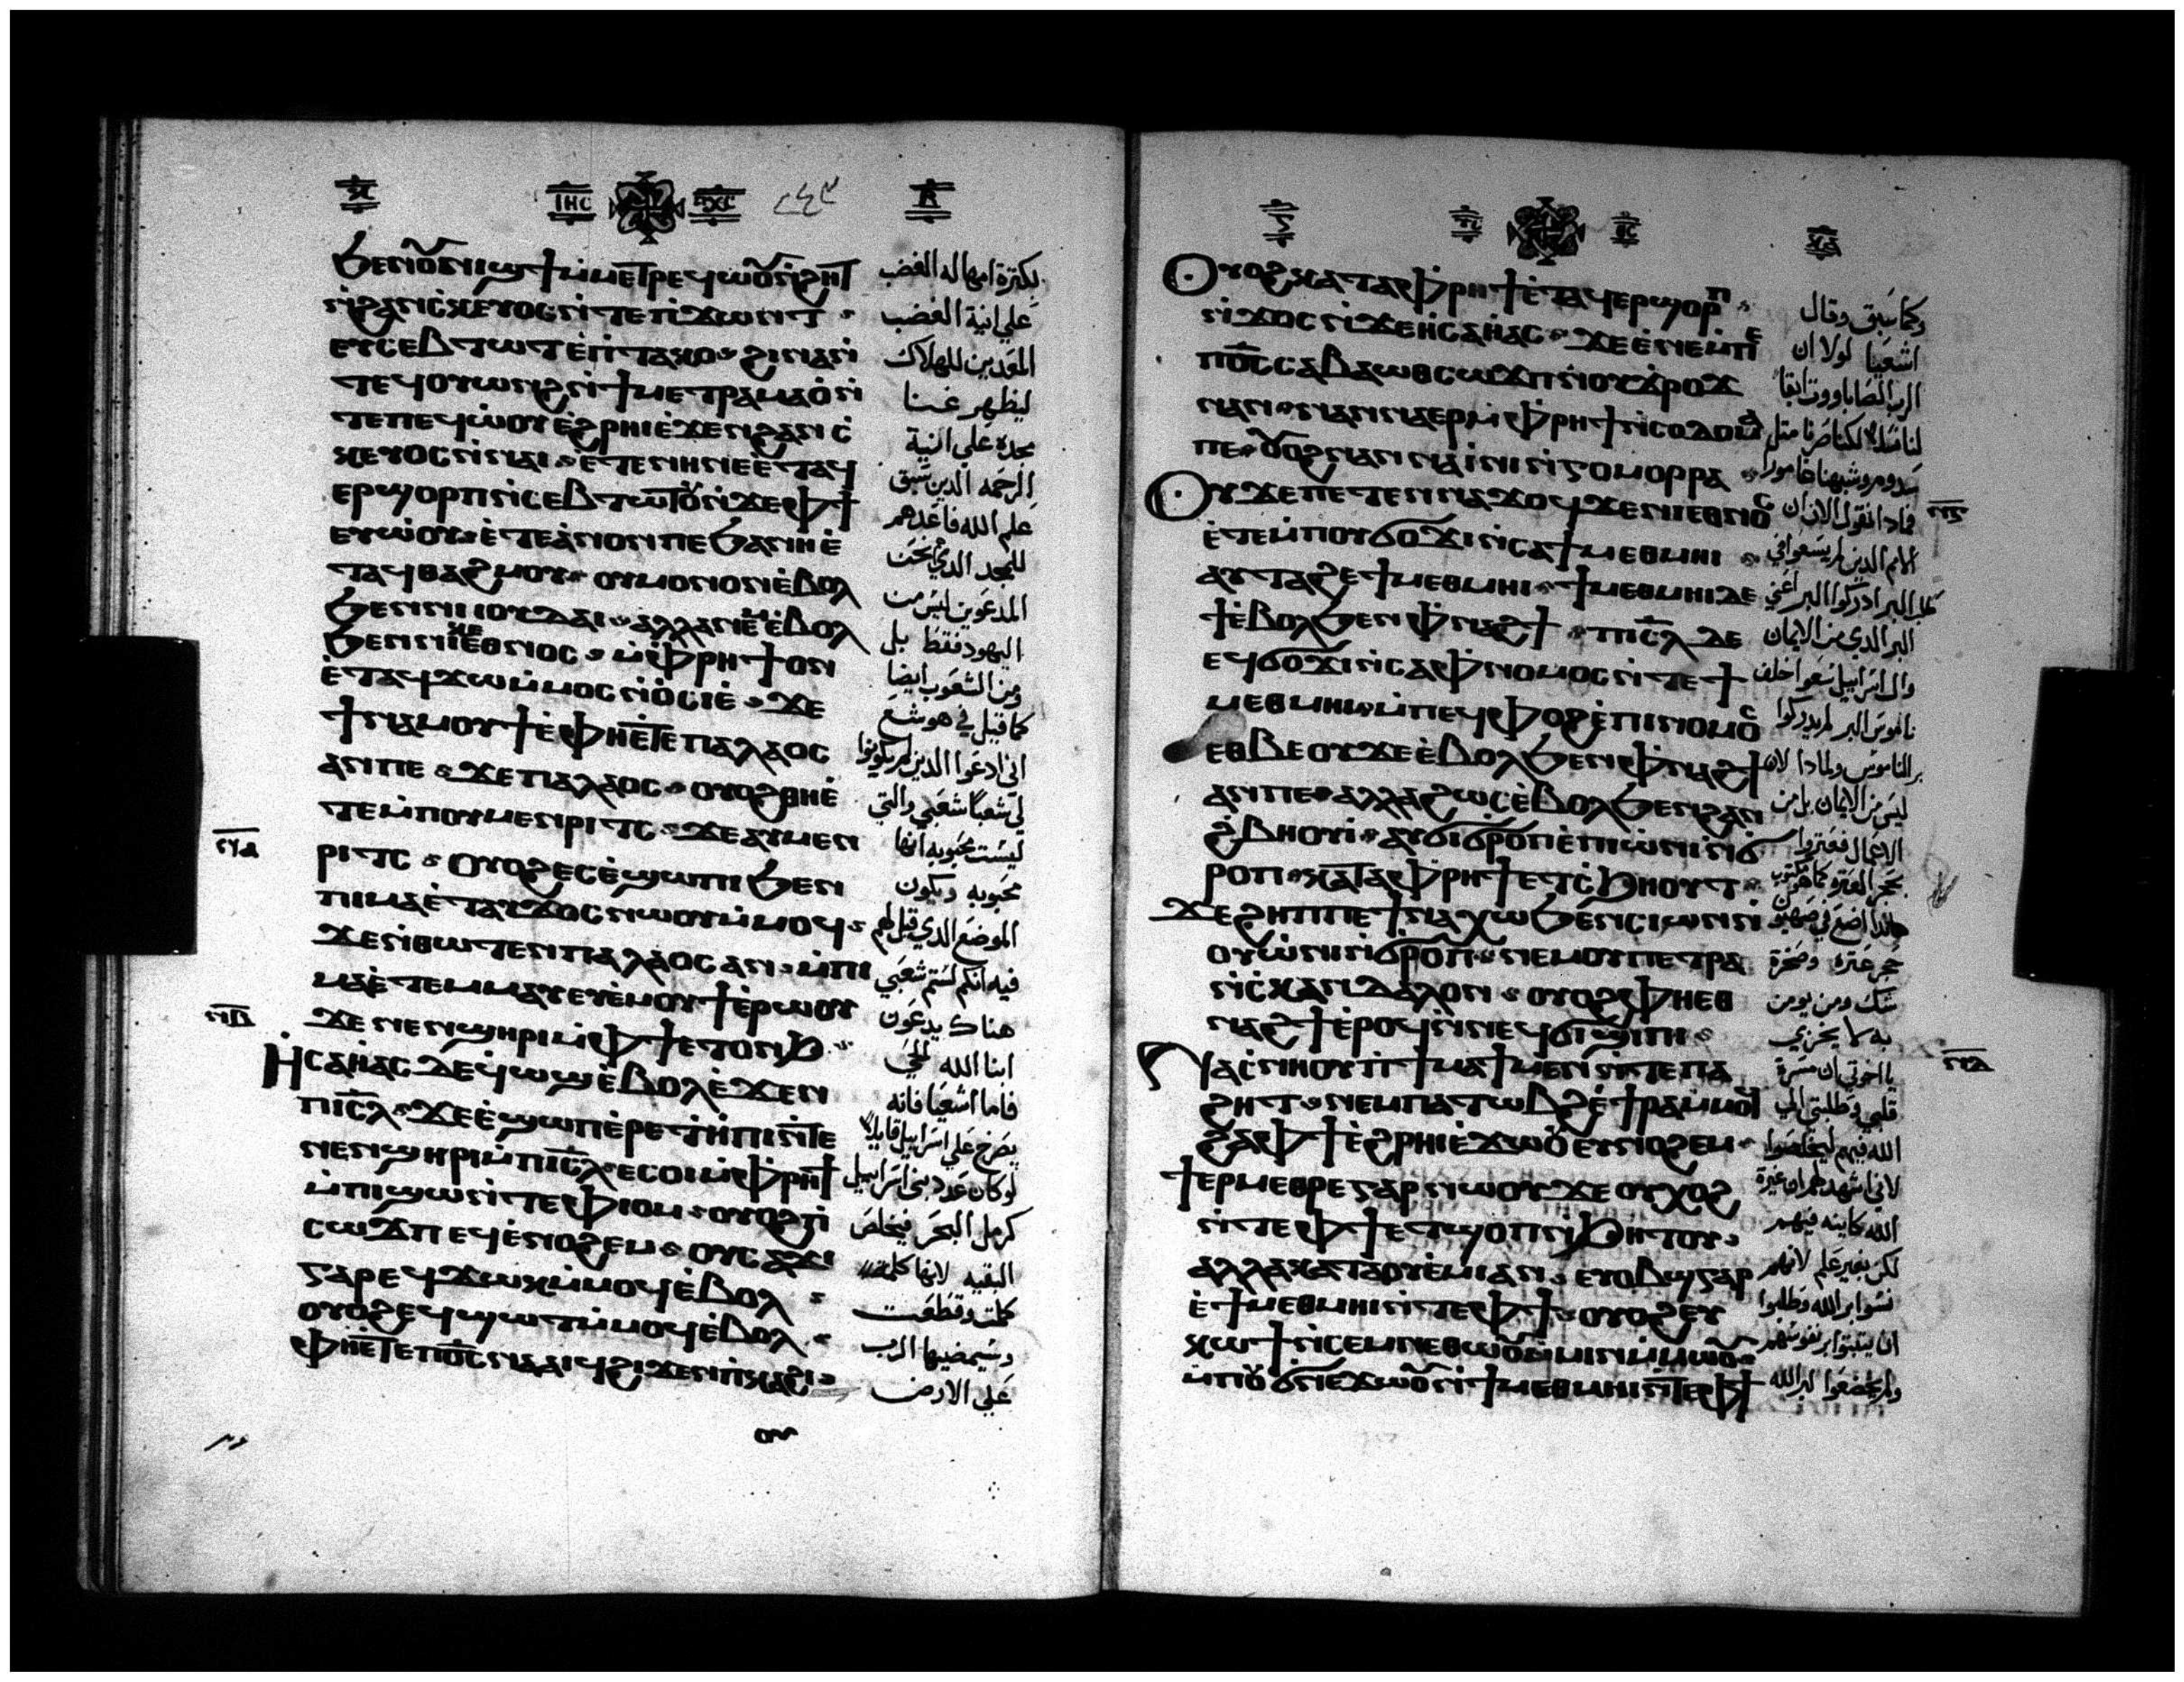 ⲗ̅ ⲓⲏⲥ ⲡⲭⲥ ⲃ̅
ϧⲉⲛⲟⲩⲛⲓϣϯⲙ̀ⲙⲉⲧⲣⲉϥⲱⲟⲩⲛ̀ϩⲏⲧ
ⲛ̀ϩⲁⲛⲥ̀ⲕⲉⲩⲟⲥⲛ̀ⲧⲉⲡ̀ϫⲱⲛⲧ
ⲉⲩⲥⲉⲃⲧⲱⲧⲉ̀ⲡ̀ⲧⲁⲕⲟ ϩⲓⲛⲁⲛ̀
ⲧⲉϥⲟⲩⲱⲛϩⲛ̀ϯⲙⲉⲧⲣⲁⲙⲁⲟ̀ⲛ̀
ⲧⲉⲡⲉϥⲱ̀ⲟⲩⲉ̀ϩⲣⲏⲓⲉ̀ϫⲉⲛϩⲁⲛⲥ̀
ⲕⲉⲩⲟⲥⲛ̀ⲛⲁⲓ ⲉ̀ⲧⲉⲛⲏⲛⲉⲉ̀ⲧⲁϥ
ⲉⲣϣⲟⲣⲡⲛ̀ⲥⲉⲃⲧⲱⲧⲟⲩⲛ̀ϫⲉⲫϯ
ⲉⲩⲱ̀ⲟⲩ ⲉ̀ⲧⲉⲁ̀ⲛⲟⲛⲡⲉϧⲁⲛⲏⲉ̀
ⲧⲁϥⲑⲁϩⲙⲟⲩ ⲟⲩⲙⲟⲛⲟⲛⲉ̀ⲃⲟⲗ
ϧⲉⲛⲛⲓⲓⲟⲩⲇⲁⲓ ⲁⲗⲗⲁⲛⲉⲙⲉ̀ⲃⲟⲗ
ϧⲉⲛⲛⲓⲕⲉⲉⲑⲛⲟⲥ ⲙ̀ⲫ̀ⲣⲏϯⲟⲛ
ⲉ̀ⲧⲁϥϫⲱⲙ̀ⲙⲟⲥⲛ̀ⲟ̀ⲥⲓⲉ̀ ϫⲉ
ϯⲛⲁⲙⲟⲩϯⲉ̀ⲫⲏⲉ̀ⲧⲉⲡⲁⲗⲁⲟⲥ
ⲁⲛⲡⲉ ϫⲉⲡⲁⲗⲁⲟⲥ ⲟⲩⲟϩⲑⲏⲉ̀
ⲧⲉⲙ̀ⲡⲟⲩⲙⲉⲛⲣⲓⲧⲥ ϫⲉⲁⲩⲙⲉⲛ
ⲣⲓⲧⲥ ⲟⲩⲟϩⲉⲥⲉ̀ϣⲱⲡⲓϧⲉⲛ
ⲡⲓⲙⲁⲉ̀ⲧⲁⲩϫⲟⲥⲛⲱⲟⲩⲙ̀ⲙⲟϥ
ϫⲉⲛ̀ⲑⲱⲧⲉⲛⲡⲁⲗⲁⲟⲥⲁⲛ ⲙ̀ⲡⲓ
ⲙⲁⲉ̀ⲧⲉⲙⲙⲁⲩⲉⲩⲉ̀ⲙⲟⲩϯⲉ̀ⲣⲱⲟⲩ
ϫⲉⲛⲉⲛϣⲏⲣⲓⲙ̀ⲫϯⲉⲧⲟⲛϧ
ⲏ̀ⲥⲁⲏ̀ⲁⲥⲇⲉϥ̀ⲱϣⲉ̀ⲃⲟⲗⲉ̀ϫⲉⲛ
ⲡⲓⲥ̅ⲗ ϫⲉⲉ̀ϣⲱⲡⲉ̀ⲣⲉϯⲏ̀ⲡⲓⲛ̀ⲧⲉ
ⲛⲉⲛϣⲏⲣⲓⲙ̀ⲡⲓⲥ̅ⲗ ⲉⲥⲟⲓⲙ̀ⲫ̀ⲣⲏϯ
ⲙ̀ⲡⲓϣⲱⲛ̀ⲧⲉⲫⲓⲟⲙ ⲟⲩⲟϩⲡ̀
ⲥⲱϫⲡⲉϥⲉ̀ⲛⲟϩⲉⲙ ⲟⲩⲥⲁϫⲓ
ⲅⲁⲣⲉϥϫⲱⲕⲙ̀ⲙⲟϥⲉ̀ⲃⲟⲗ
ⲟⲩⲟϩⲉϥϣⲱⲧⲙ̀ⲙⲟϥⲉ̀ⲃⲟⲗ
ⲫⲏⲉ̀ⲧⲉⲡⲟ̅ⲥⲛⲁⲁⲓϥϩⲓϫⲉⲛⲡ̀ⲕⲁϩⲓ
لكثرة امهاله الغضب
علي انية الغضب
المعدين للهلاك
ليظهر غنا
مجده علي انية
الرحمه الدين سبق
علم الله فاعدهم
للمجد الدي نحن
المدعوين ليس من
اليهود فقط بل
ومن الشعوب ايضا
كما قيل في هوشع
اني ادعوا الدين لم يكونوا
لي شعبا شعبي والتي
ليست محبوبه انها
محبوبه ويكون
الموضع الدي قيل لهم
فيه انكم لستم شعبي
هناك يدعون
ابنا الله الحي
فاما اشعيا فانه
يصرخ علي اسراييل قايلا
لو كان عدد بني اسراييل
كرمل البحر فيخلص
البقيه لانها كلمة
كملت وقطعت
وسيمضيها الرب
علي الارض
ⲋ̅ ⲩⲥ ⲑⲥ ⲗⲁ̅
ⲟⲩⲟϩⲕⲁⲧⲁⲫ̀ⲣⲏϯⲉ̀ⲧⲁϥⲉⲣϣⲟⲣⲡ
ⲛ̀ϫⲟⲥⲛ̀ϫⲉⲏ̀ⲥⲁⲏ̀ⲁⲥ ϫⲉⲉ̀ⲛⲉⲙⲡⲉ
ⲡⲟ̅ⲥⲥⲁⲃⲁⲱⲑⲥⲱϫⲡⲛ̀ⲟⲩϫ̀ⲣⲟϫ
ⲛⲁⲛ ⲛⲁⲛⲛⲁⲉⲣⲙ̀ⲫ̀ⲣⲏϯⲛ̀ⲥⲟⲇⲟⲙⲁ
ⲡⲉ ⲟⲩⲟϩⲛⲁⲛⲛⲁⲓ̀ⲛⲓⲛ̀ⲅⲟⲙⲟⲣⲣⲁ
ⲟⲩϫⲉⲡⲉⲧⲉⲛⲛⲁϫⲟϥϫⲉⲛⲓⲉⲑⲛⲟⲥ
ⲉ̀ⲧⲉⲙ̀ⲡⲟⲩϭⲟϫⲓⲛ̀ⲥⲁϯⲙⲉⲑⲙⲏⲓ
ⲁⲩⲧⲁϩⲉϯⲙⲉⲑⲙⲏⲓ ϯⲙⲉⲑⲙⲏⲓⲇⲉ
ϯⲉ̀ⲃⲟⲗϧⲉⲛⲫ̀ⲛⲁϩϯ ⲡⲓⲥ̅ⲗ ⲇⲉ
ⲉϥϭⲟϫⲓⲛ̀ⲥⲁⲫ̀ⲛⲟⲙⲟⲥⲛ̀ⲧⲉϯ
ⲙⲉⲑⲙⲏⲓ ⲙ̀ⲡⲉϥⲫⲟϩⲉ̀ⲡⲓⲛⲟⲙⲟⲥ
ⲉⲑⲃⲉⲟⲩϫⲉⲉ̀ⲃⲟⲗϧⲉⲛⲫ̀ⲛⲁϩϯ
ⲁⲛⲡⲉ ⲁⲗⲗⲁϩⲱⲥⲉ̀ⲃⲟⲗϧⲉⲛϩⲁⲛ
ϩ̀ⲃⲏⲟⲩⲓ̀ ⲁⲩϭⲓϭⲣⲟⲡⲉ̀ⲡⲓⲱ̀ⲛⲓⲛ̀ϭ
ⲣⲟⲡ ⲕⲁⲧⲁⲫ̀ⲣⲏϯⲉⲧⲥ̀ϧⲏⲟⲩⲧ
ϫⲉϩⲏⲡⲡⲉϯⲛⲁⲭⲱϧⲉⲛⲥⲓⲱⲛⲛ̀
ⲟⲩⲱ̀ⲛⲓⲛ̀ϭⲣⲟⲡ ⲛⲉⲙⲟⲩⲡⲉⲧⲣⲁ
ⲛ̀ⲥ̀ⲕⲁⲛⲇⲁⲗⲟⲛ ⲟⲩⲟϩⲫⲏⲉⲑ
ⲛⲁϩϯⲉ̀ⲣⲟϥⲛ̀ⲛⲉϥϭⲓϣⲓⲡⲓ
ⲛⲁⲥ̀ⲛⲏⲟⲩⲡ̀ϯⲙⲁϯⲙⲉⲛⲛ̀ⲧⲉⲡⲁ
ϩⲏⲧ ⲛⲉⲙⲡⲁⲧⲱⲃϩⲉ̀ϯⲣⲁⲙⲙⲟⲛ
ϩⲁⲫϯⲉ̀ϩⲣⲏⲓⲉ̀ϫⲱⲟⲩⲉⲩⲛⲟϩⲉⲙ
ϯⲉⲣⲙⲉⲑⲣⲉⲅⲁⲣⲛⲱⲟⲩϫⲉⲟⲩⲭⲟϩ
ⲛ̀ⲧⲉⲫϯⲉⲧϣⲟⲡⲛ̀ϧⲏⲧⲟⲩ
ⲁⲗⲗⲁⲕⲁⲧⲁⲟⲩⲉ̀ⲙⲓⲁⲛ ⲉⲩⲟⲃϣⲅⲁⲣ
ⲉ̀ϯⲙⲉⲑⲙⲏⲓⲛ̀ⲧⲉⲫϯ ⲟⲩⲟϩⲉⲩ
ⲕⲱϯⲛ̀ⲥⲉⲙⲛⲉⲑⲱⲟⲩⲙ̀ⲙⲓⲛⲙ̀ⲙⲱⲟⲩ
ⲙ̀ⲡⲟⲩϭⲛⲉϫⲱⲟⲩⲛ̀ϯⲙⲉⲑⲙⲏⲓⲛ̀ⲧⲉⲫϯ
وكما سبق وقال
اشعيا لولا ان
الرب الصاباووت ابقا
لنا نسلا لكنا صرنا مثل
سدوم وشبهنا غامورا
فمادا نقول الان ان
الامم الدين لم يسعوا في
طلب البر ادركوا البر اعني
البر الدي من الايمان
وال اسراييل سعوا خلف
ناموس البر لم يدركوا
بر الناموس ولمادا لان
ليس من الايمان بل من
الاعمال فعتروا
بحجر العتره كما هو مكتوب
هاندا اضع في صهيون
حجر عتره وصخرة
شك ومن يومن
به لا يخزي
يا اخوتي ان مسرة
قلبي وطلبتي الي
الله فيهم ليخلصوا
لاني اشهد لهم ان غيرة
الله كاينه فيهم
لكن بغير علم لانهم
نسوا بر الله وطلبوا
ان يثبتوا بر نفوسهم
ولم يخضعوا لبر الله